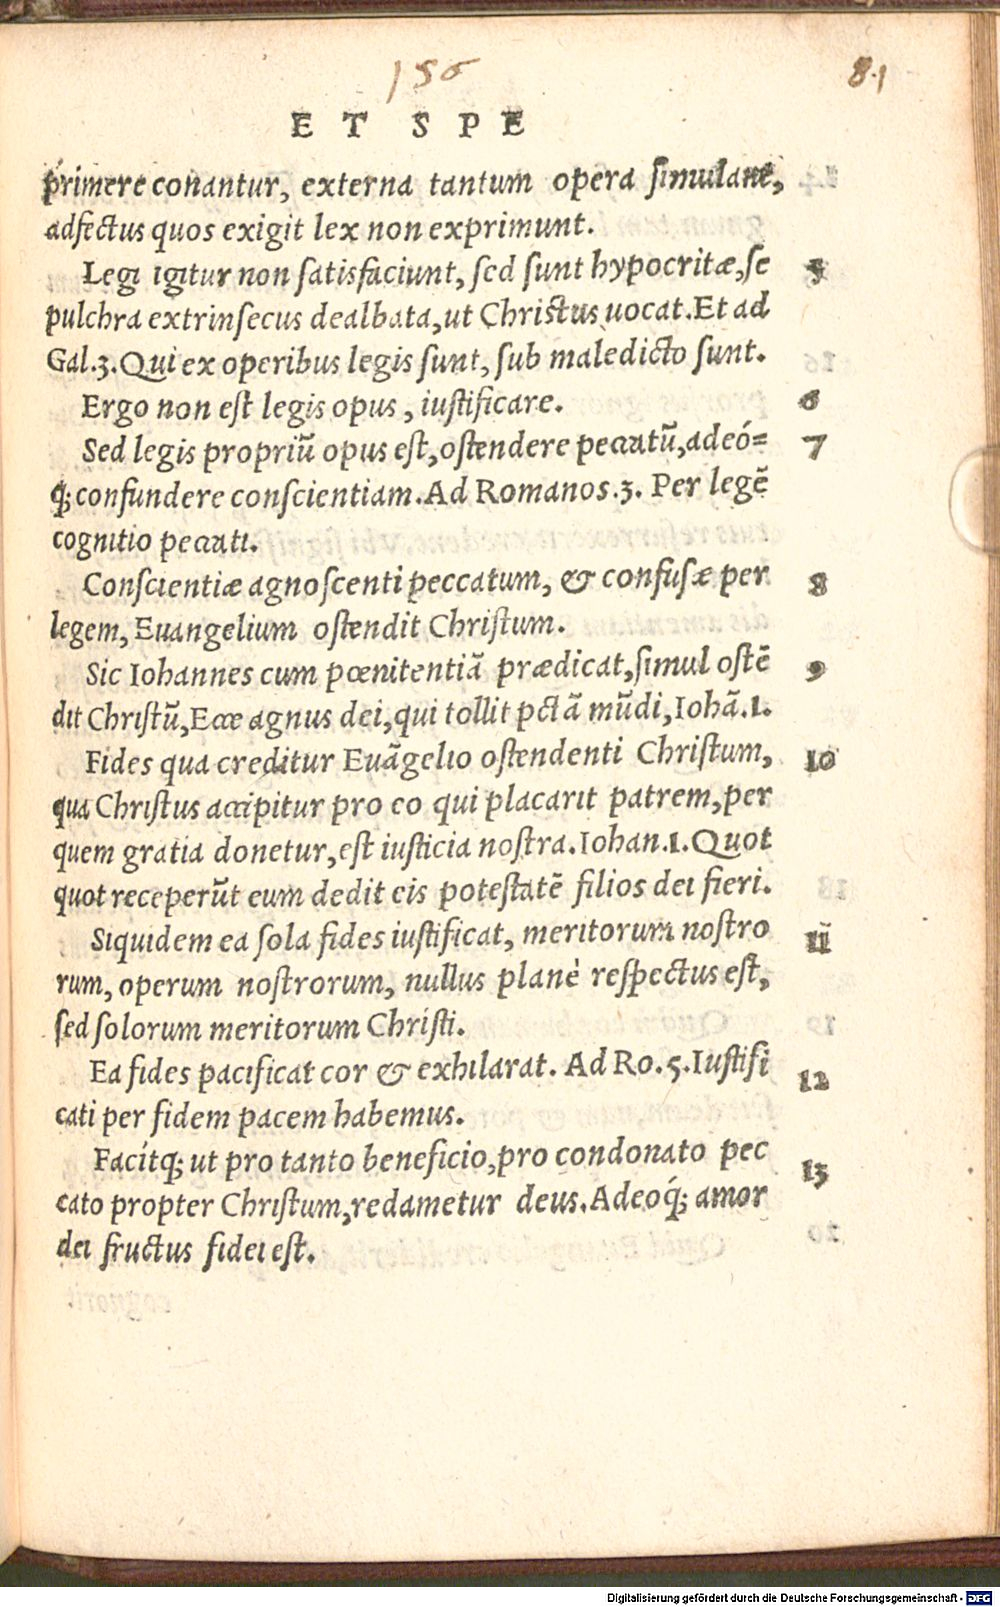 156
81
ET SPE
primere conantur, externa tantum opera simulant,
adfectus quos exigit lex non exprimunt.
Legi igitur non satisfaciunt, sed sunt hypocritæ, se 5
pulchra extrinsecus dealbata, ut Christus uocat. Et ad
Gal.3. Qui ex operibus legis sunt, sub maledicto sunt.
Ergo non est legis opus, iustificare. 6
Sed legis propriũ opus est, ostendere peccatũ, adeó= 7
q; confundere conscientiam. Ad Romanos.3. Per legẽ
cognitio peccati.
Conscientiæ agnoscenti peccatum, & confusæ per 8
legem, Euangelium ostendit Christum.
Sic Iohannes cum pœnitentiã prædicat, simul ostẽ 9
dit Christũ, Ecce agnus dei, qui tollit pctã mũdi, Iohã.1.
Fides qua creditur Euãgelio ostendenti Christum, 10
qua Christus accipitur pro eo qui placarit patrem, per
quem gratia donetur, est iusticia nostra. Iohan.1. Quot
quot receperũt eum dedit eis potestatẽ filios dei fieri.
Siquidem ea sola fides iustificat, meritorum nostro 11
rum, operum nostrorum, nullus planè respectus est,
sed solorum meritorum Christi.
Ea fides pacificat cor & exhilarat. Ad Ro.5. Iustifi 12
cati per fidem pacem habemus.
Facítq; ut pro tanto beneficio, pro condonato pec 13
cato propter Christum, redametur deus. Adeoq́; amor
dei fructus fidei est.
Digitalisierung gefördert durch die Deutsche Forschungsgemeinschaft - DFG